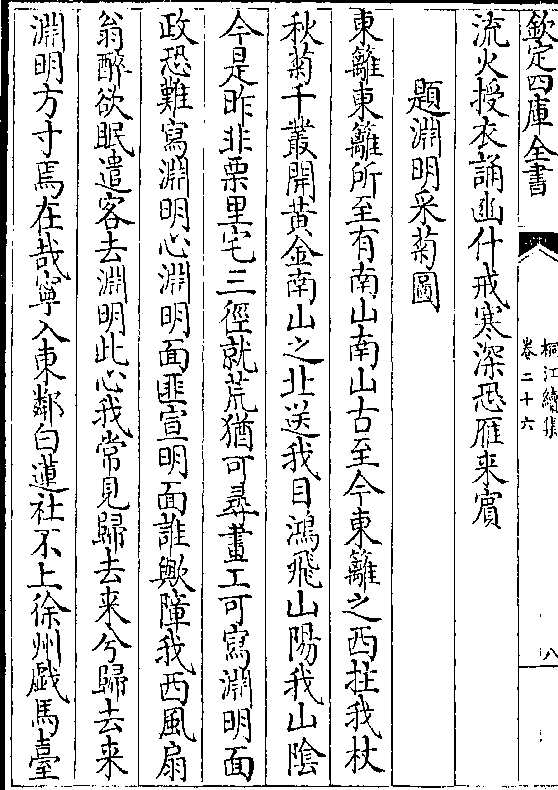 欽定四庫全書
桐江續集
卷二十六
八
流火授衣誦豳什戒寒深恐雁来賓
題淵明采菊圖
東籬東籬所至有南山南山古至今東籬之西拄我杖
秋菊千叢開黃金南山之北送我目鴻飛山陽我山陰
今是昨非栗里宅三徑就荒猶可尋畫工可寫淵明面
政恐難寫淵明心淵明面匪宣明面誰歟障我西風扇
翁醉欲眠遣客去淵明此心我常見歸去来兮歸去来
淵明方寸焉在哉寧入東鄰白蓮社不上徐州戯馬臺